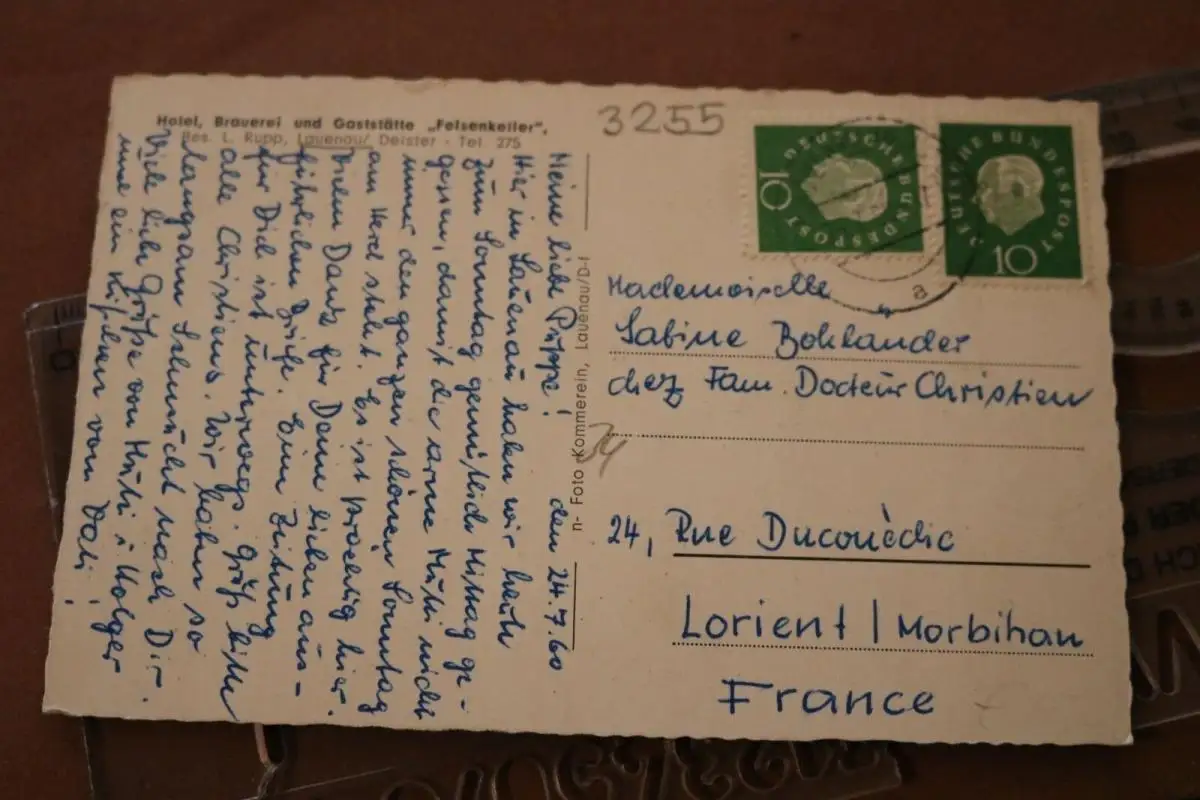 Hotel, Brauerei und Gaststätte „Felsenkeller",
Bes. L. Rupp, Lauenau/ Deister - Tel. 275
3255
DEUTSCHE BUNDESPOST
10
DEUTSCHE BUNDESPOST
10
a
den 24.7.60
Meine liebe Puppe!
Hier in Lauenau haben wir heute
zum Sonntag gemütlich Mittag ge-
gessen, damit die arme Mutti nicht
immer den ganzen schönen Sonntag
am Herd steht. Es ist prächtig hier.
Vielen Dank für Deine lieben aus-
führlichen Briefe. Eine Zeitung
für Dich ist unterwegs. Grüß bitte
alle Christiens. Wir haben so
langsam Sehnsucht nach Dir.
Viele liebe Grüße von Mutti & Holger
und ein Küßchen vom Vati!
n- Foto Kommerein, Lauenau/D-f
Mademoiselle
Sabine Bohlander
chez Fam. Docteur Christien
24, Rue Ducouëdic
Lorient / Morbihan
France